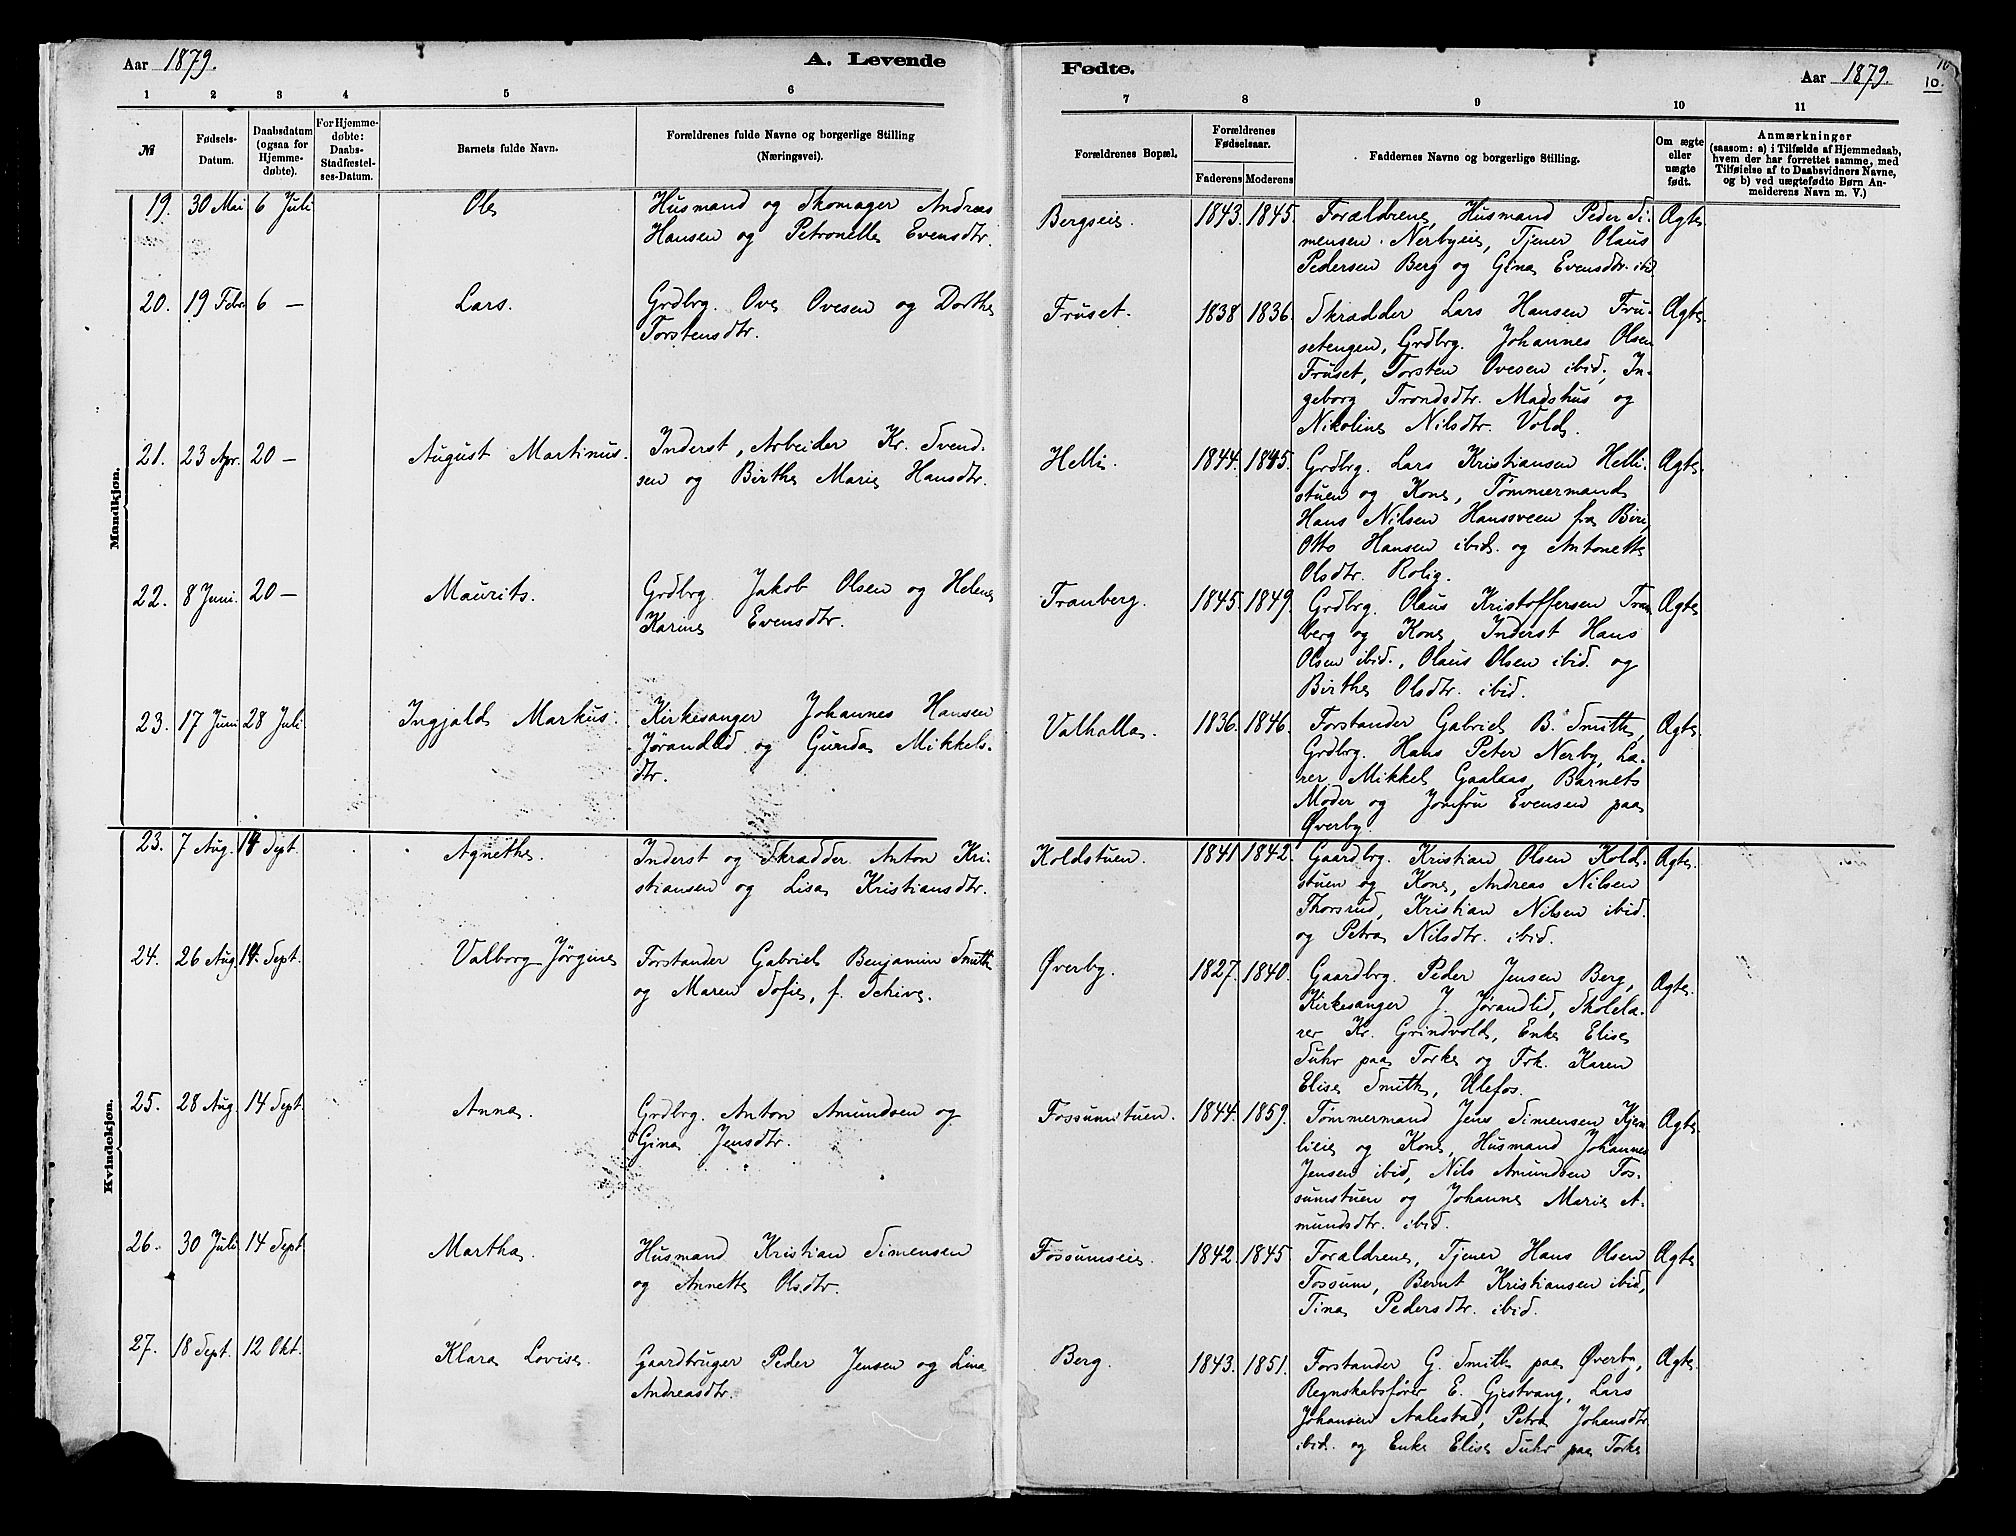 Aar 1879.
A. Levende
Fødte.
Aar 1879.
10
10.
1 2 3 4 5 6
7 8 9 10 11
№
Fødsels-
Datum.
Daabsdatum
(ogsaa for
Hjemme-
døbte).
For Hjemme-
døbte:
Daabs-
Stadfæstel-
ses-Datum.
Barnets fulde Navn.
Forældrenes fulde Navne og borgerlige Stilling
(Næringsvei).
Forældrenes Bopæl.
Forældrenes
Fødselsaar.
Faderens Moderens
Faddernes Navne og borgerlige Stilling.
Om ægte
eller
uægte
født.
Anmærkninger
(saasom: a) i Tilfælde af Hjemmedaab,
hvem der har forrettet samme, med
Tilføielse af to Daabsvidners Navne,
og b) ved uægtefødte Børn An-
melderens Navn m. V.)
Mandkjøn.
19. 30 Mai 6 Juli Ole Husmand og Skomager Andreas
Hansen og Petronelle Evensdtr.
Bergseie 1843. 1845. Forældrene, Husmand Peder Si-
mensen Nerbyeie, Tjener Olaus
Pedersen Berg og Gina Evensdtr. ibid
Ægte
20. 19 Febr 6 — Lars. Grdbrg. Ove Ovesen og Dorthe
Torstensdtr.
Fruset. 1838 1836. Skrædder Lars Hansen Fru-
setengen, Grdbrg. Johannes Olsen
Fruset, Torsten Ovesen ibid, In-
geborg Trondsdtr. Madshus og
Nikoline Nilsdtr. Vold.
Ægte
21. 23 Apr. 20 — August Martinus. Inderst, Arbeider Kr. Svend-
sen og Birthe Marie Hansdtr.
Helli. 1844. 1845. Grdbrg. Lars Kristiansen Helli-
stuen og Kone, Tømmermand
Hans Nilsen Hanssveen fra Biri,
Otto Hansen ibid. og Antonette
Olsdtr. Rolig.
Ægte
22. 8 Juni. 20 — Maurits. Grdbrg. Jakob Olsen og Helene
Karine Evensdtr.
Tranberg. 1845. 1849. Grdbrg. Olaus Kristoffersen Tran
berg og Kone, Inderst Hans
Olsen ibid., Olaus Olsen ibid. og
Birthe Olsdtr. ibid.
Ægte
23. 17 Juni 28 Juli Ingjald Markus. Kirkesanger Johannes Hansen
Jørandlid og Gunda Mikkels-
dtr.
Valhalla. 1836. 1846. Forstander Gabriel B. Smith,
Grdbrg. Hans Peter Nerby, Læ-
rer Mikkel Gaalaas, Barnets
Moder og Jomfru Evensen paa
Øverby.
Ægte
Kvindekjøn.
23. 7 Aug. 14 Sept. Agnethe. Inderst og Skrædder Anton Kri-
stiansen og Lisa Kristiansdtr.
Koldstuen. 1841 1842. Gaardbrg. Kristian Olsen Kold-
stuen og Kone, Andreas Nilsen
Thorsrud, Kristian Nilsen ibid.
og Petra Nilsdtr. ibid.
Ægte
24. 26 Aug. 14 Sept. Valborg Jørgine Forstander Gabriel Benjamin Smith
og Maren Sofie, f. Schive.
Øverby. 1827. 1840. Gaardbrg. Peder Jensen Berg,
Kirkesanger J. Jørandlid, Skolelæ-
rer Kr. Grindvold, Enke Elise
Suhr paa Torke og Frk. Karen
Elise Smith, Ulefos.
Ægte.
25. 28 Aug. 14 Sept. Anna. Grdbrg. Anton Amundsen og
Gina Jensdtr.
Fossumstuen. 1844. 1859. Tømmermand Jens Simensen Kjem-
lieie og Kone, Husmand Johannes
Jensen ibid, Nils Amundsen Fos-
sumstuen og Johanne Marie A-
mundsdtr. ibid.
Ægte
26. 30 Juli 14 Sept Martha. Husmand Kristian Simensen
og Annette Olsdtr.
Fossumseie. 1842. 1845 Forældrene, Tjener Hans Olsen
Fossum, Bernt Kristiansen ibid,
Tina Pedersdtr. ibid.
Ægte
27. 18 Sept. 12 Okt. Klara Lovise. Gaardbruger Peder Jensen og Lina
Andreasdtr.
Berg. 1843. 1851. Forstander G. Smith paa Øverby,
Regnskabsfører E. Gjestvang, Lars
Johansen Aalestad, Petra Johansdtr
ibid. og Enke Elise Suhr paa Torke
Ægte.